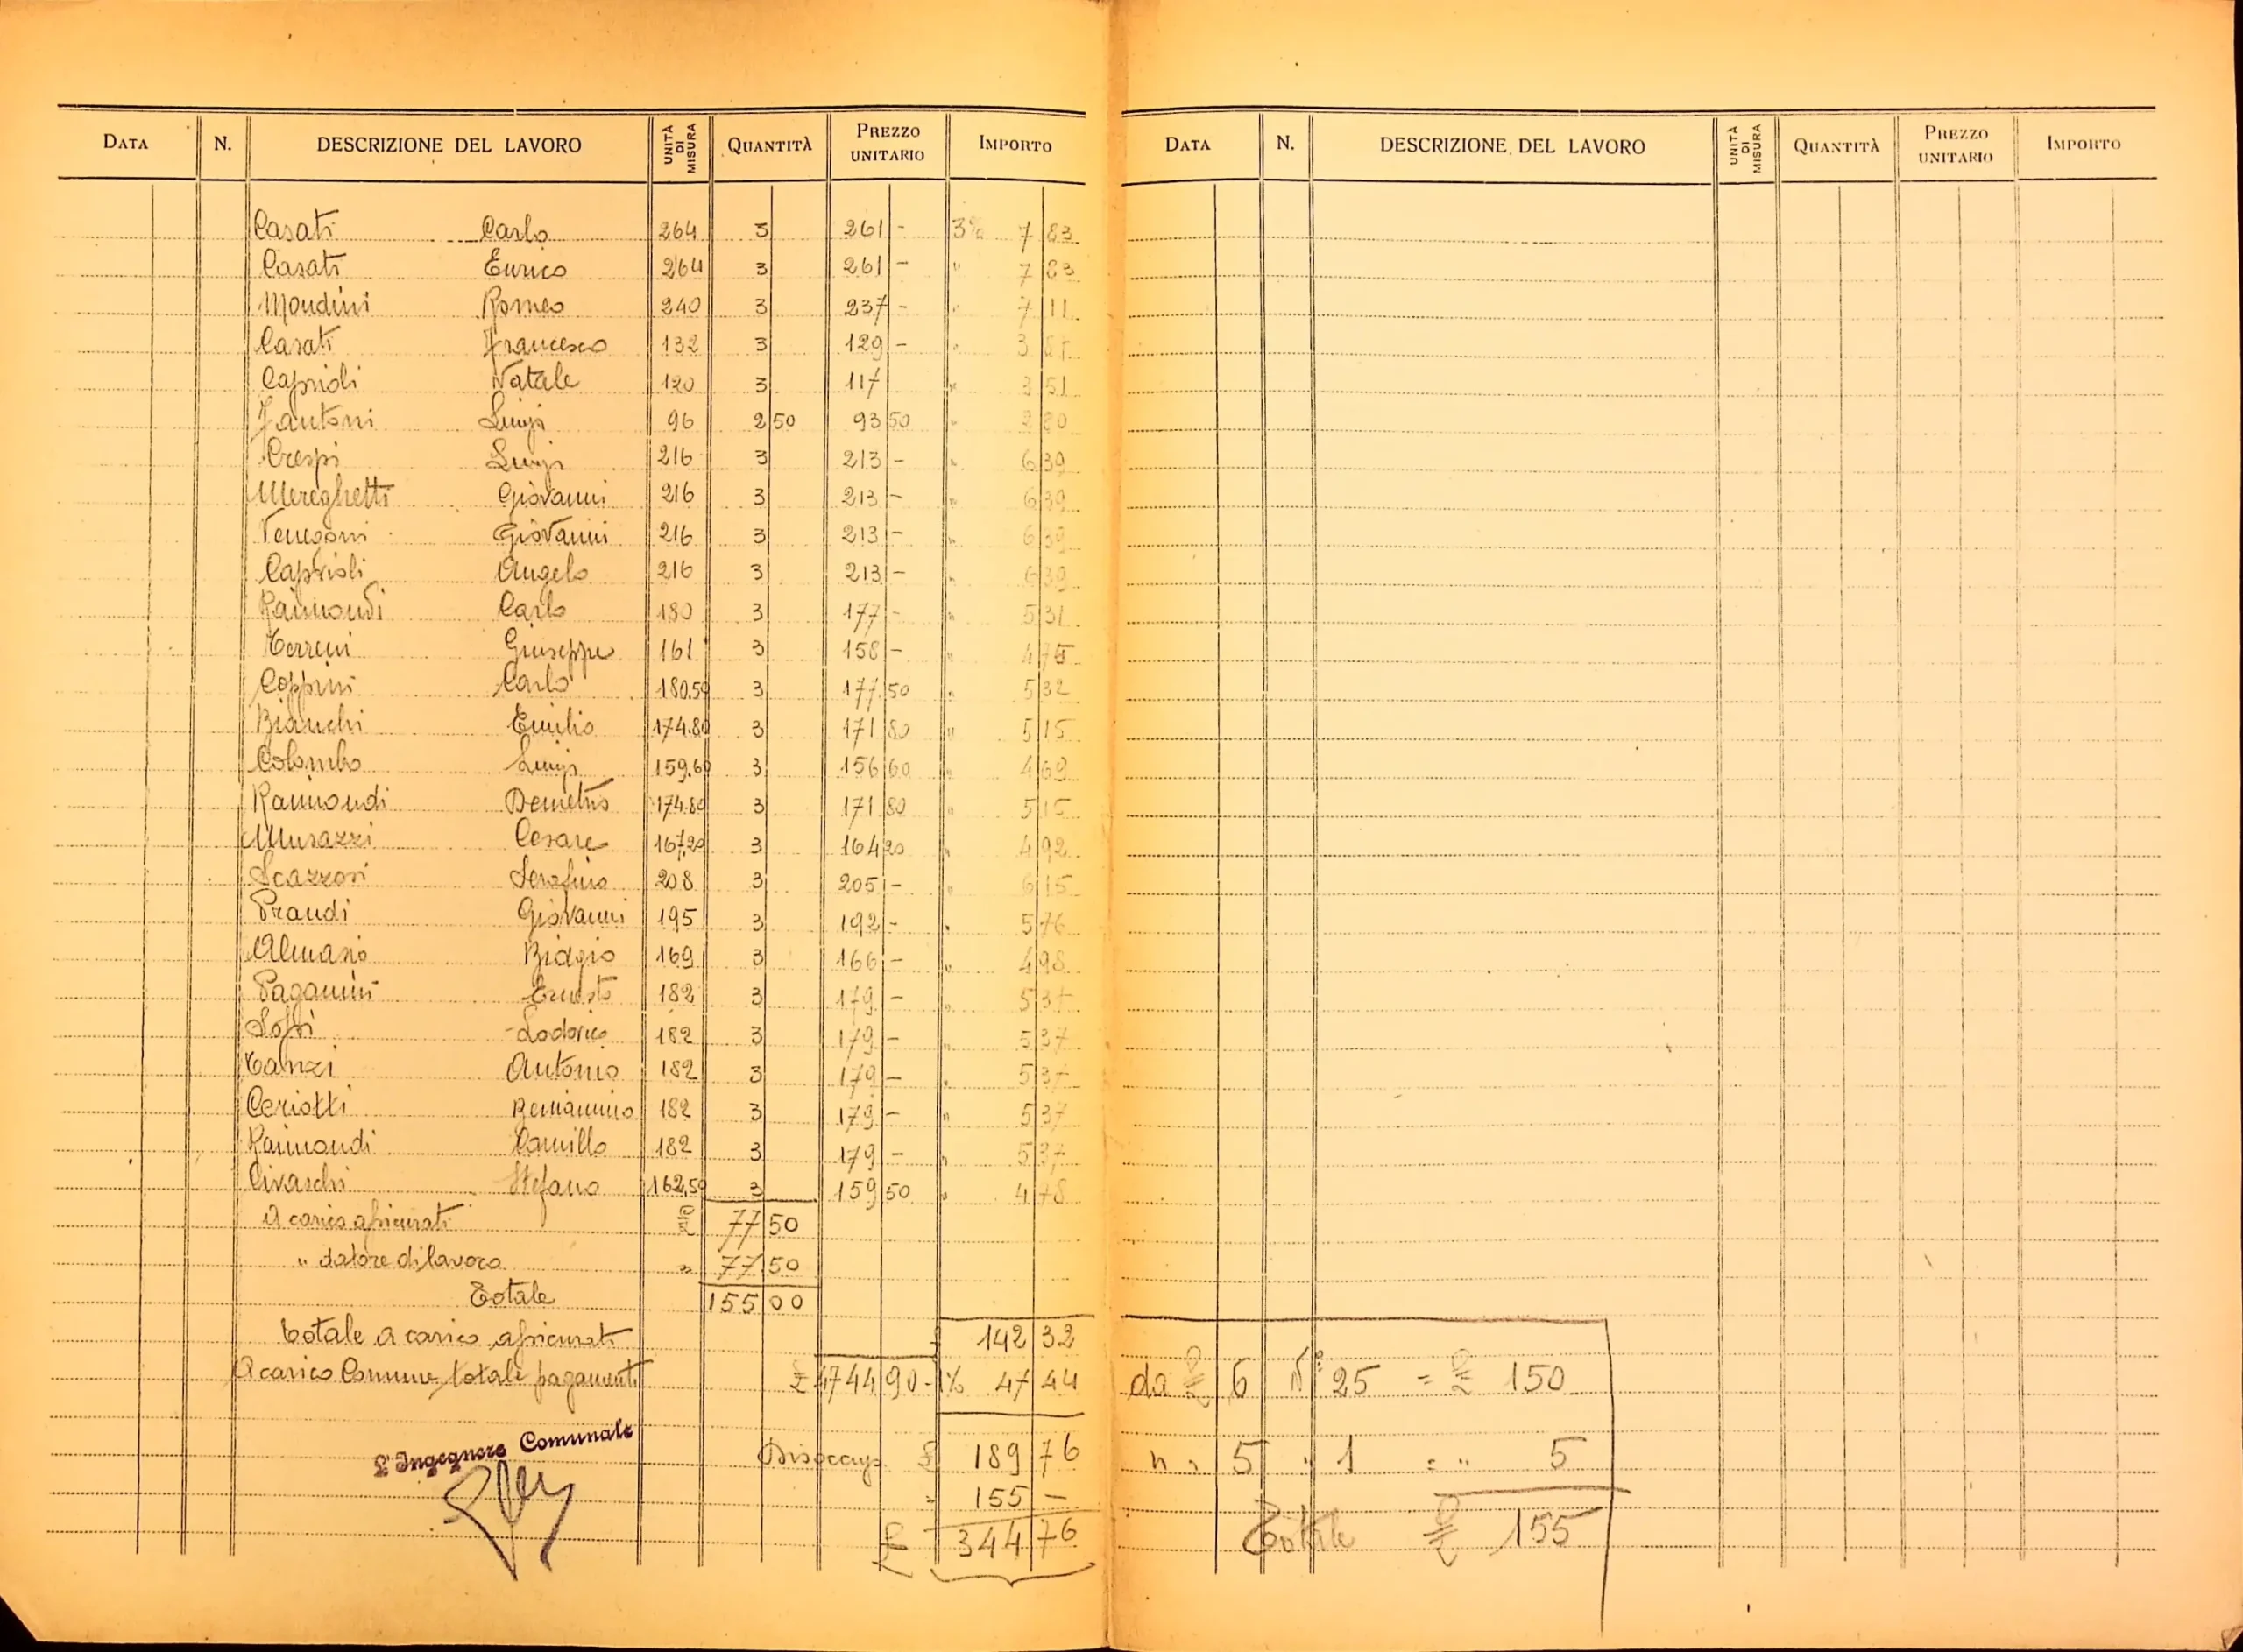 DATA N. DESCRIZIONE DEL LAVORO UNITÀ DI MISURA QUANTITÀ PREZZO UNITARIO IMPORTO
Casati Carlo 264 3 261 - 3% 7 83
Casati Enrico 264 3 261 - " 7 83
Mondini Romeo 240 3 237 - " 7 11
Casati Francesco 132 3 129 - " 3 87
Caprioli Natale 120 3 117 " 3 51
Fantoni Luigi 96 2 50 93 50 " 2 80
Crespi Luigi 216 3 213 - " 6 39
Mereghetti Giovanni 216 3 213 - " 6 39
Venegoni Giovanni 216 3 213 - " 6 39
Caprioli Angelo 216 3 213 - " 6 39
Raimondi Carlo 180 3 177 - " 5 31
Terreni Giuseppe 161 3 158 - " 4 75
Coppini Carlo 180.50 3 177.50 " 5 32
Bianchi Emilio 174.80 3 171 80 " 5 15
Colombo Luigi 159.60 3 156 60 " 4 69
Raimondi Demetrio 174.80 3 171 80 " 5 15
Musazzi Cesare 167,20 3 164 20 " 4 92
Scazzosi Serafino 208 3 205 - " 6 15
Prandi Giovanni 195 3 192 - " 5 76
Almasio Biagio 169 3 166 - " 4 98
Paganini Ernesto 182 3 179 - " 5 37
Lodovico 182 3 179 - " 5 37
Tanzi Antonio 182 3 179 - " 5 37
Ceriotti Beniamino 182 3 179 - " 5 37
Raimondi Camillo 182 3 179 - " 5 37
Civaschi Stefano 162,50 3 159 50 " 4 78
A carico assicurati £ 77 50
" datore di lavoro " 77.50
Totale 155 00
Totale a carico assicurati £ 142 32
A carico Comune, totale pagamenti £ 4744 90 - 1% 47 44
L'Ingegnere Comunale
Disoccup. £ 189 76
" 155 -
£ 344 76
DATA N. DESCRIZIONE DEL LAVORO UNITÀ DI MISURA QUANTITÀ PREZZO UNITARIO IMPORTO
da £ 6 N° 25 = £ 150
" " 5 " 1 = " 5
Totale £ 155